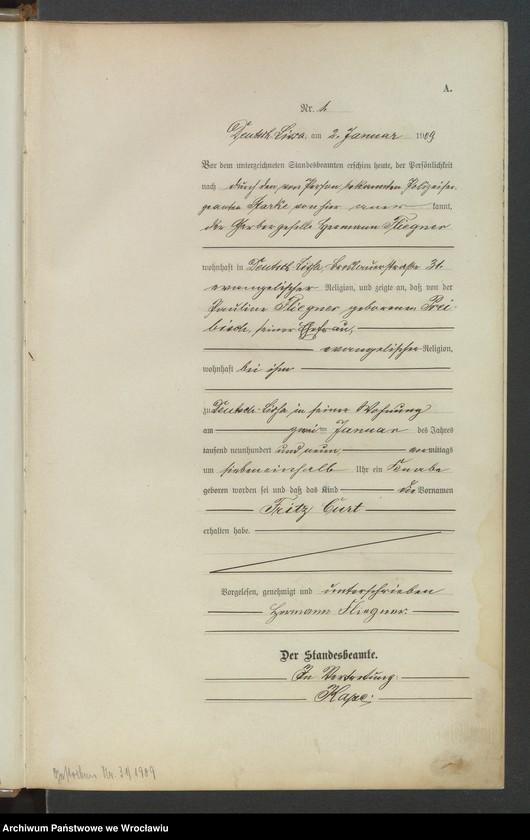 A.
Nr. 1
Deutsch Lissa, am 2. Januar 1909
Vor dem unterzeichneten Standesbeamten erschien heute, der Persönlichkeit
nach durch den von Person bekannten Polizeiser-
geanten Starke von hier aner kannt,
der Gerbergeselle Hermann Fliegner
wohnhaft in Deutsch Lissa, Breslauerstraße 31.
evangelischer Religion, und zeigte an, daß von der
Pauline Fliegner geborenen Prei-
bisch, seiner Ehefrau,
evangelischer Religion,
wohnhaft bei ihm
zu Deutsch Lissa in seiner Wohnung
am zwei Januar des Jahres
tausend neunhundert und neun, vormittags
um siebeneinhalb Uhr ein Knabe
geboren worden sei und daß das Kind die Vornamen
Fritz Curt
erhalten habe.
Vorgelesen, genehmigt und unterschrieben
Hermann Fliegner.
Der Standesbeamte.
In Vertretung.
Gestorben Nr. 31/1909
Archiwum Państwowe we Wrocławiu